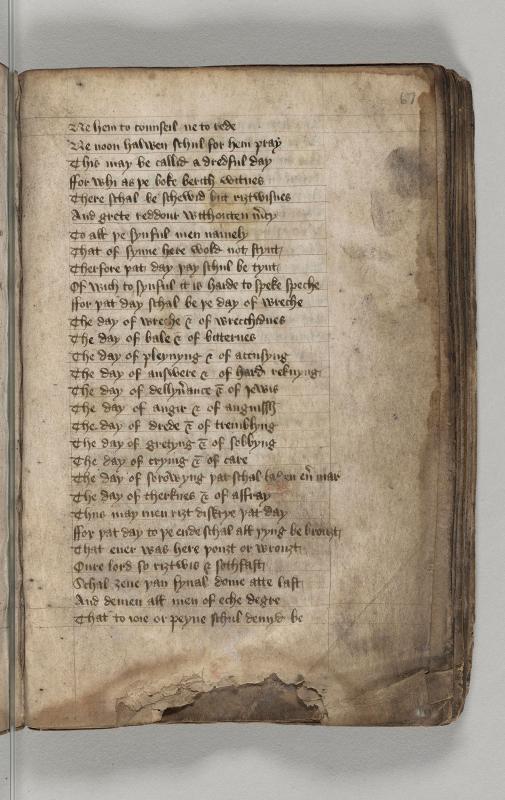 67
Ne hem to counseil ne to rede
Ne noon halwen schul for hem pray
This may be callid a dredful day
ffor whi as þe boke berith witnes
There schal be schewid but riztwisnes
And grete reddour withouten m̄cy
To all þe synful men namely
That of synne here wold not stynt
Therfore þat day þay schul be tynt
Of wich to synful it is harde to speke speche
ffor þat day schal be þe day of wreche
The day of wreche & of wrecchidnes
The day of bale & of bitternes
The day of pleynyng & of accusyng
The day of answere & of hard reknyng
The day of delyūance & of Jewis
The day of angir & of anguissh
The day of drede & of tremblyng
The day of gretyng & of sobbyng
The day of crying & of care
The day of sorowyng þat schal laſten eū mar
The day of therknes & of affray
Thus may men rizt diskrye þat day
ffor þat day to þe ende schal all þyng be brouzt
That euer was here þouzt or wrouzt
Oure lord so riztwis & sothfast
Schal zeue þan fynal dome atte last
And demen all men of eche degre
That to ioie or peyne schul demyd be